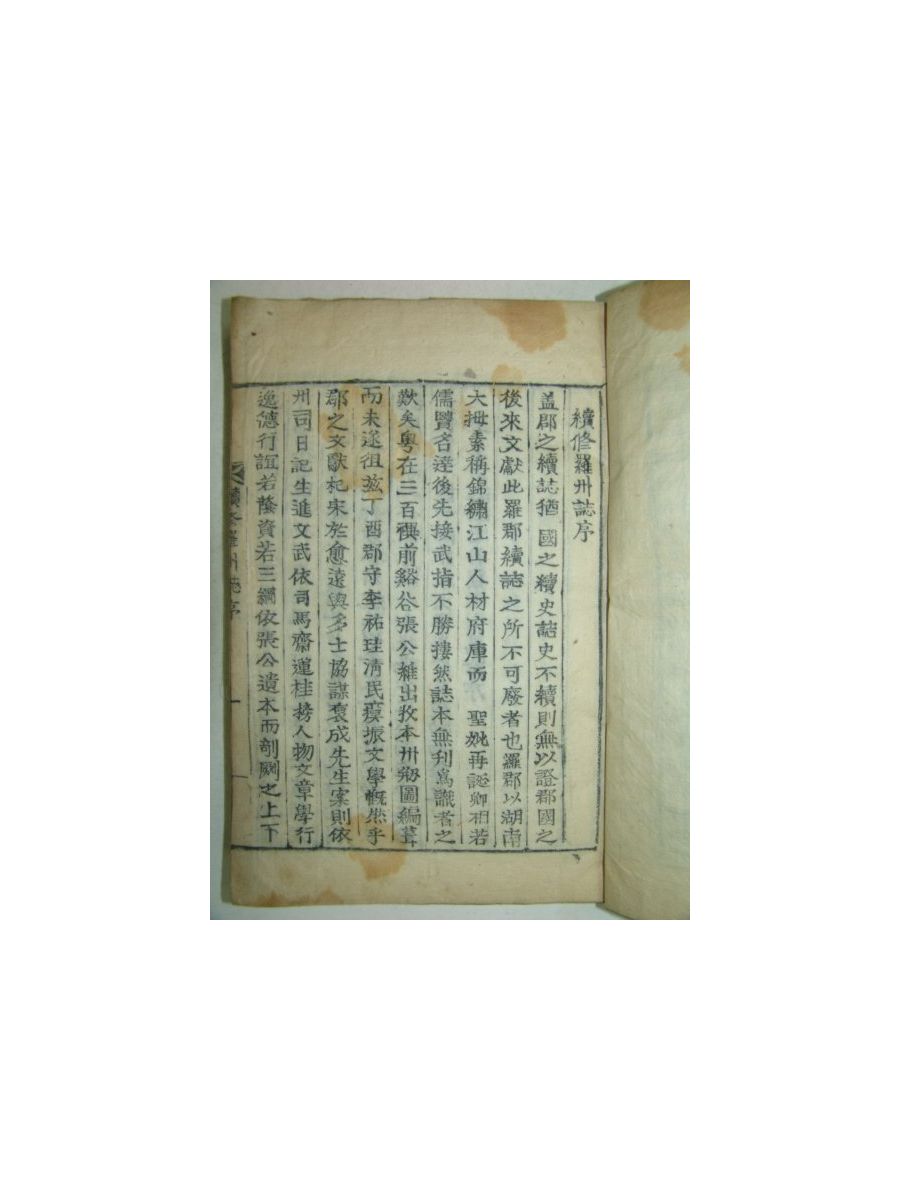 續修羅州誌序
盖郡之續誌猶 國之續史誌史不續則無以證郡國之
後來文獻此羅郡續誌之所不可廢者也羅郡以湖南
大拇素稱錦繡江山人材府庫而 聖妣再誕卿相若
儒賢名達後先接武指不勝摟然誌本無刊爲識者之
歎矣粤在三百禩前谿谷張公維出牧本州刱圖編葺
而未遂徂玆丁酉郡守李祐珪淸民瘼振文學慨然乎
郡之文獻杞宋於愈遠與多士協謀裒成先生案則依
州司日記生進文武依司馬齋蓮桂榜人物文章學行
逸德行誼若蔭資若三綱依張公遺本而剞劂之上下
續修羅州誌序 一